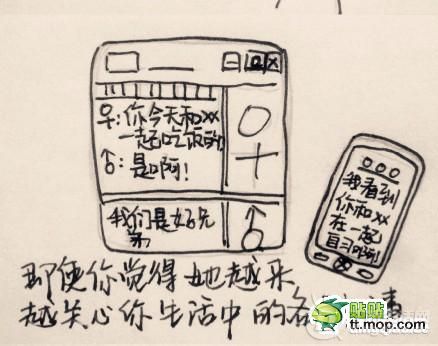 ♀:你今天和xx
一起吃饭的
♂:是啊!
我们是好兄
弟
我看到
你和xx
在一起
自习
即便你觉得她越来
越关心你生活中的各
贴贴
tt.mop.com